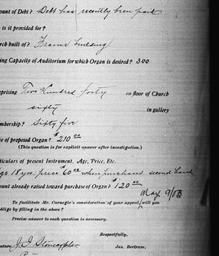 ount of Debt? Debt has recently been paid
is it provided for?
urch built of? Frame building
ing Capacity of Auditorium for which Organ is desired? 300
mprising Two Hundred forty on floor of Church
sixty in gallery
embership? Sixty five
e of proposed Organ? $210.00
(This question is for explicit answer after investigation.)
rticulars of present Instrument. Age, Price, Etc.
Age 18 yrs. price 60.00 when purchased second hand
ount already raised toward purchase of Organ? $120.00
May 9/08
To facilitate Mr. Carnegie's consideration of your appeal, will you
oblige by filling in the above?
Precise answer to each question is necessary.
Respectfully,
Jas. Bertram.